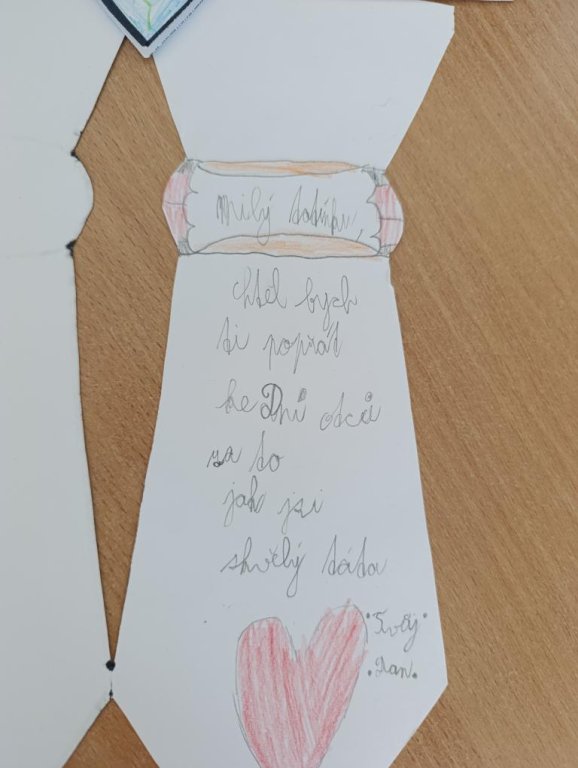 Milý tatínku,
chtěl bych
ti popřát
ke Dnů otců
za to
jak jsi
skvělý táta
Tvůj